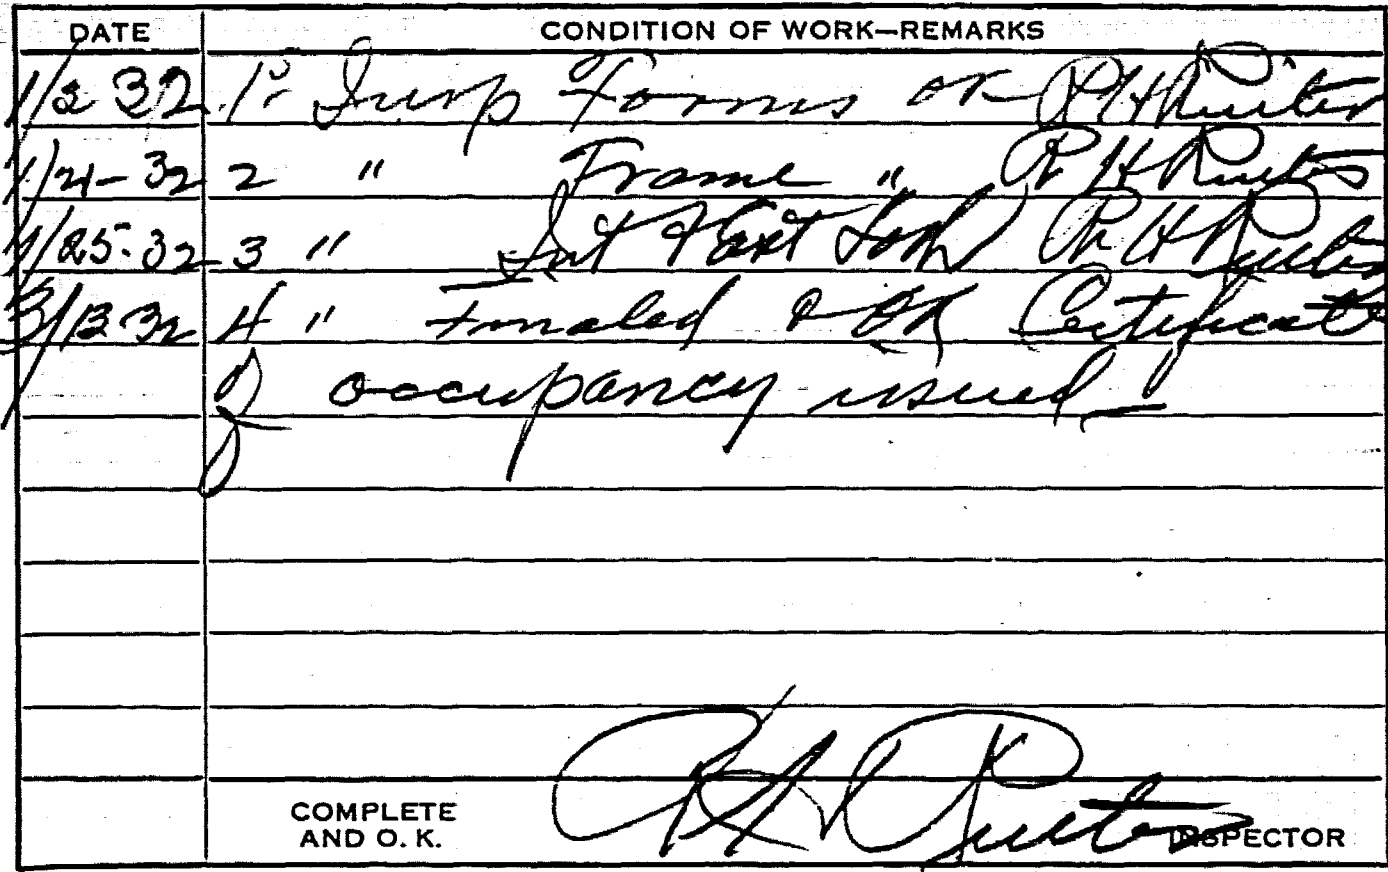 DATE CONDITION OF WORK—REMARKS
1/2 32 1st Insp Forms OK R H Ruiter
1/21-32 2 " Frame " R H Ruiter
1/25-32 3 " Int & Ext Lath R H Ruiter
3/13 32 4 " Finaled & OK Certificate
of occupancy issued
COMPLETE
AND O. K.
R H Ruiter INSPECTOR